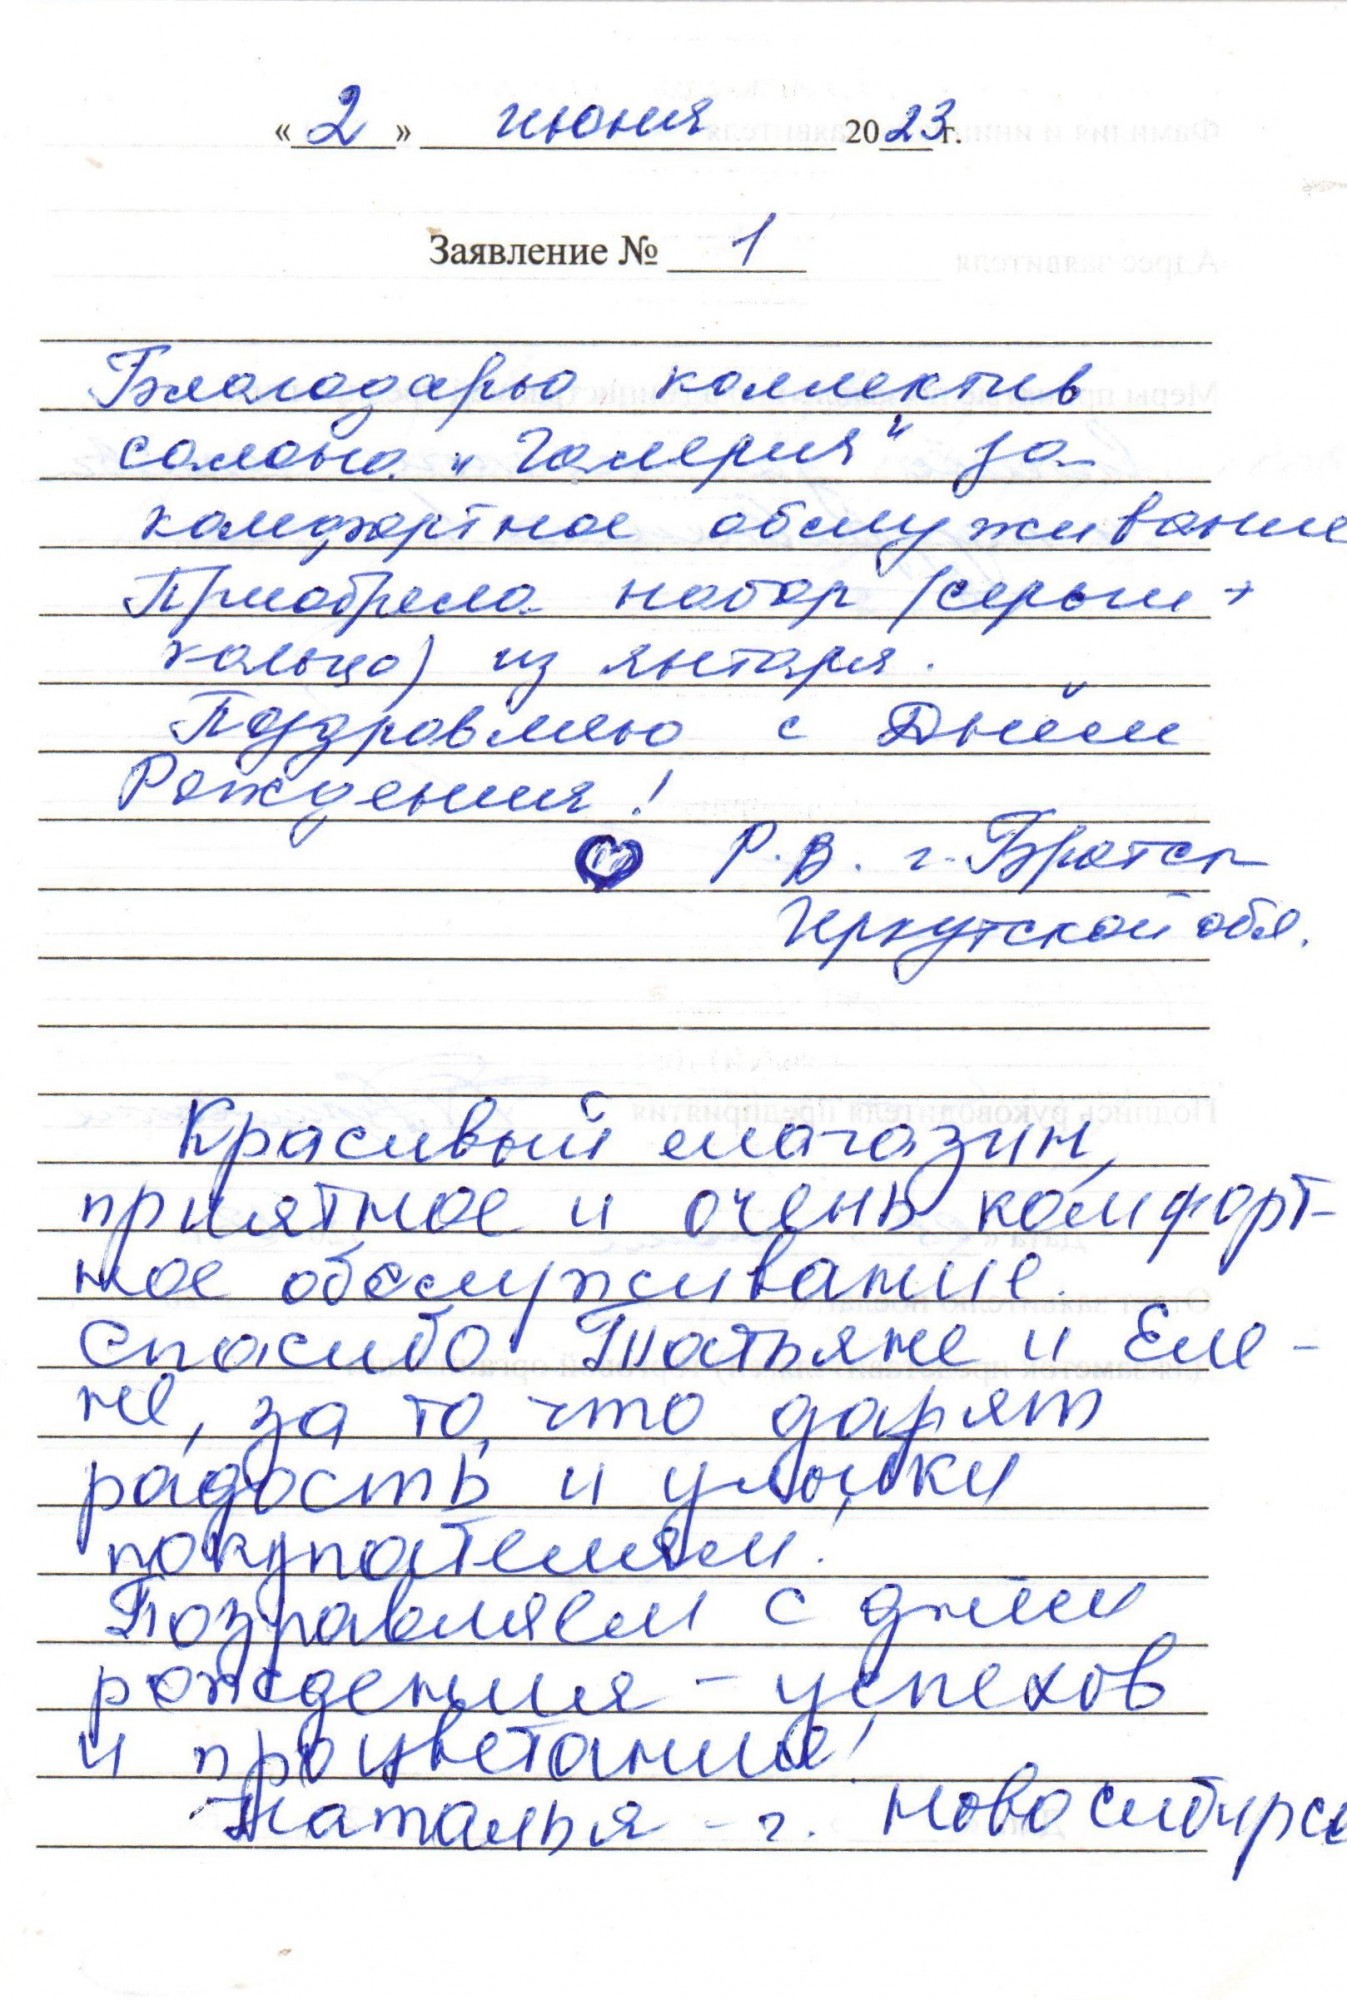 « 2 » июня 2023 г.
Заявление № 1
Благодарю коллектив
салона „Галерия" за
комфортное обслуживание
Приобрела набор (серьги +
кольцо) из янтаря.
Поздравляю с Днём
Рождения!
Р.В. г. Братск
Иркутской обл.
Красивый магазин,
приятное и очень комфорт-
ное обслуживание.
Спасибо Татьяне и Еле-
не, за то, что дарят
радость и улыбки
покупателям!
Поздравляем с днём
рождения - успехов
и процветания!
Наталья - г. Новосибирск